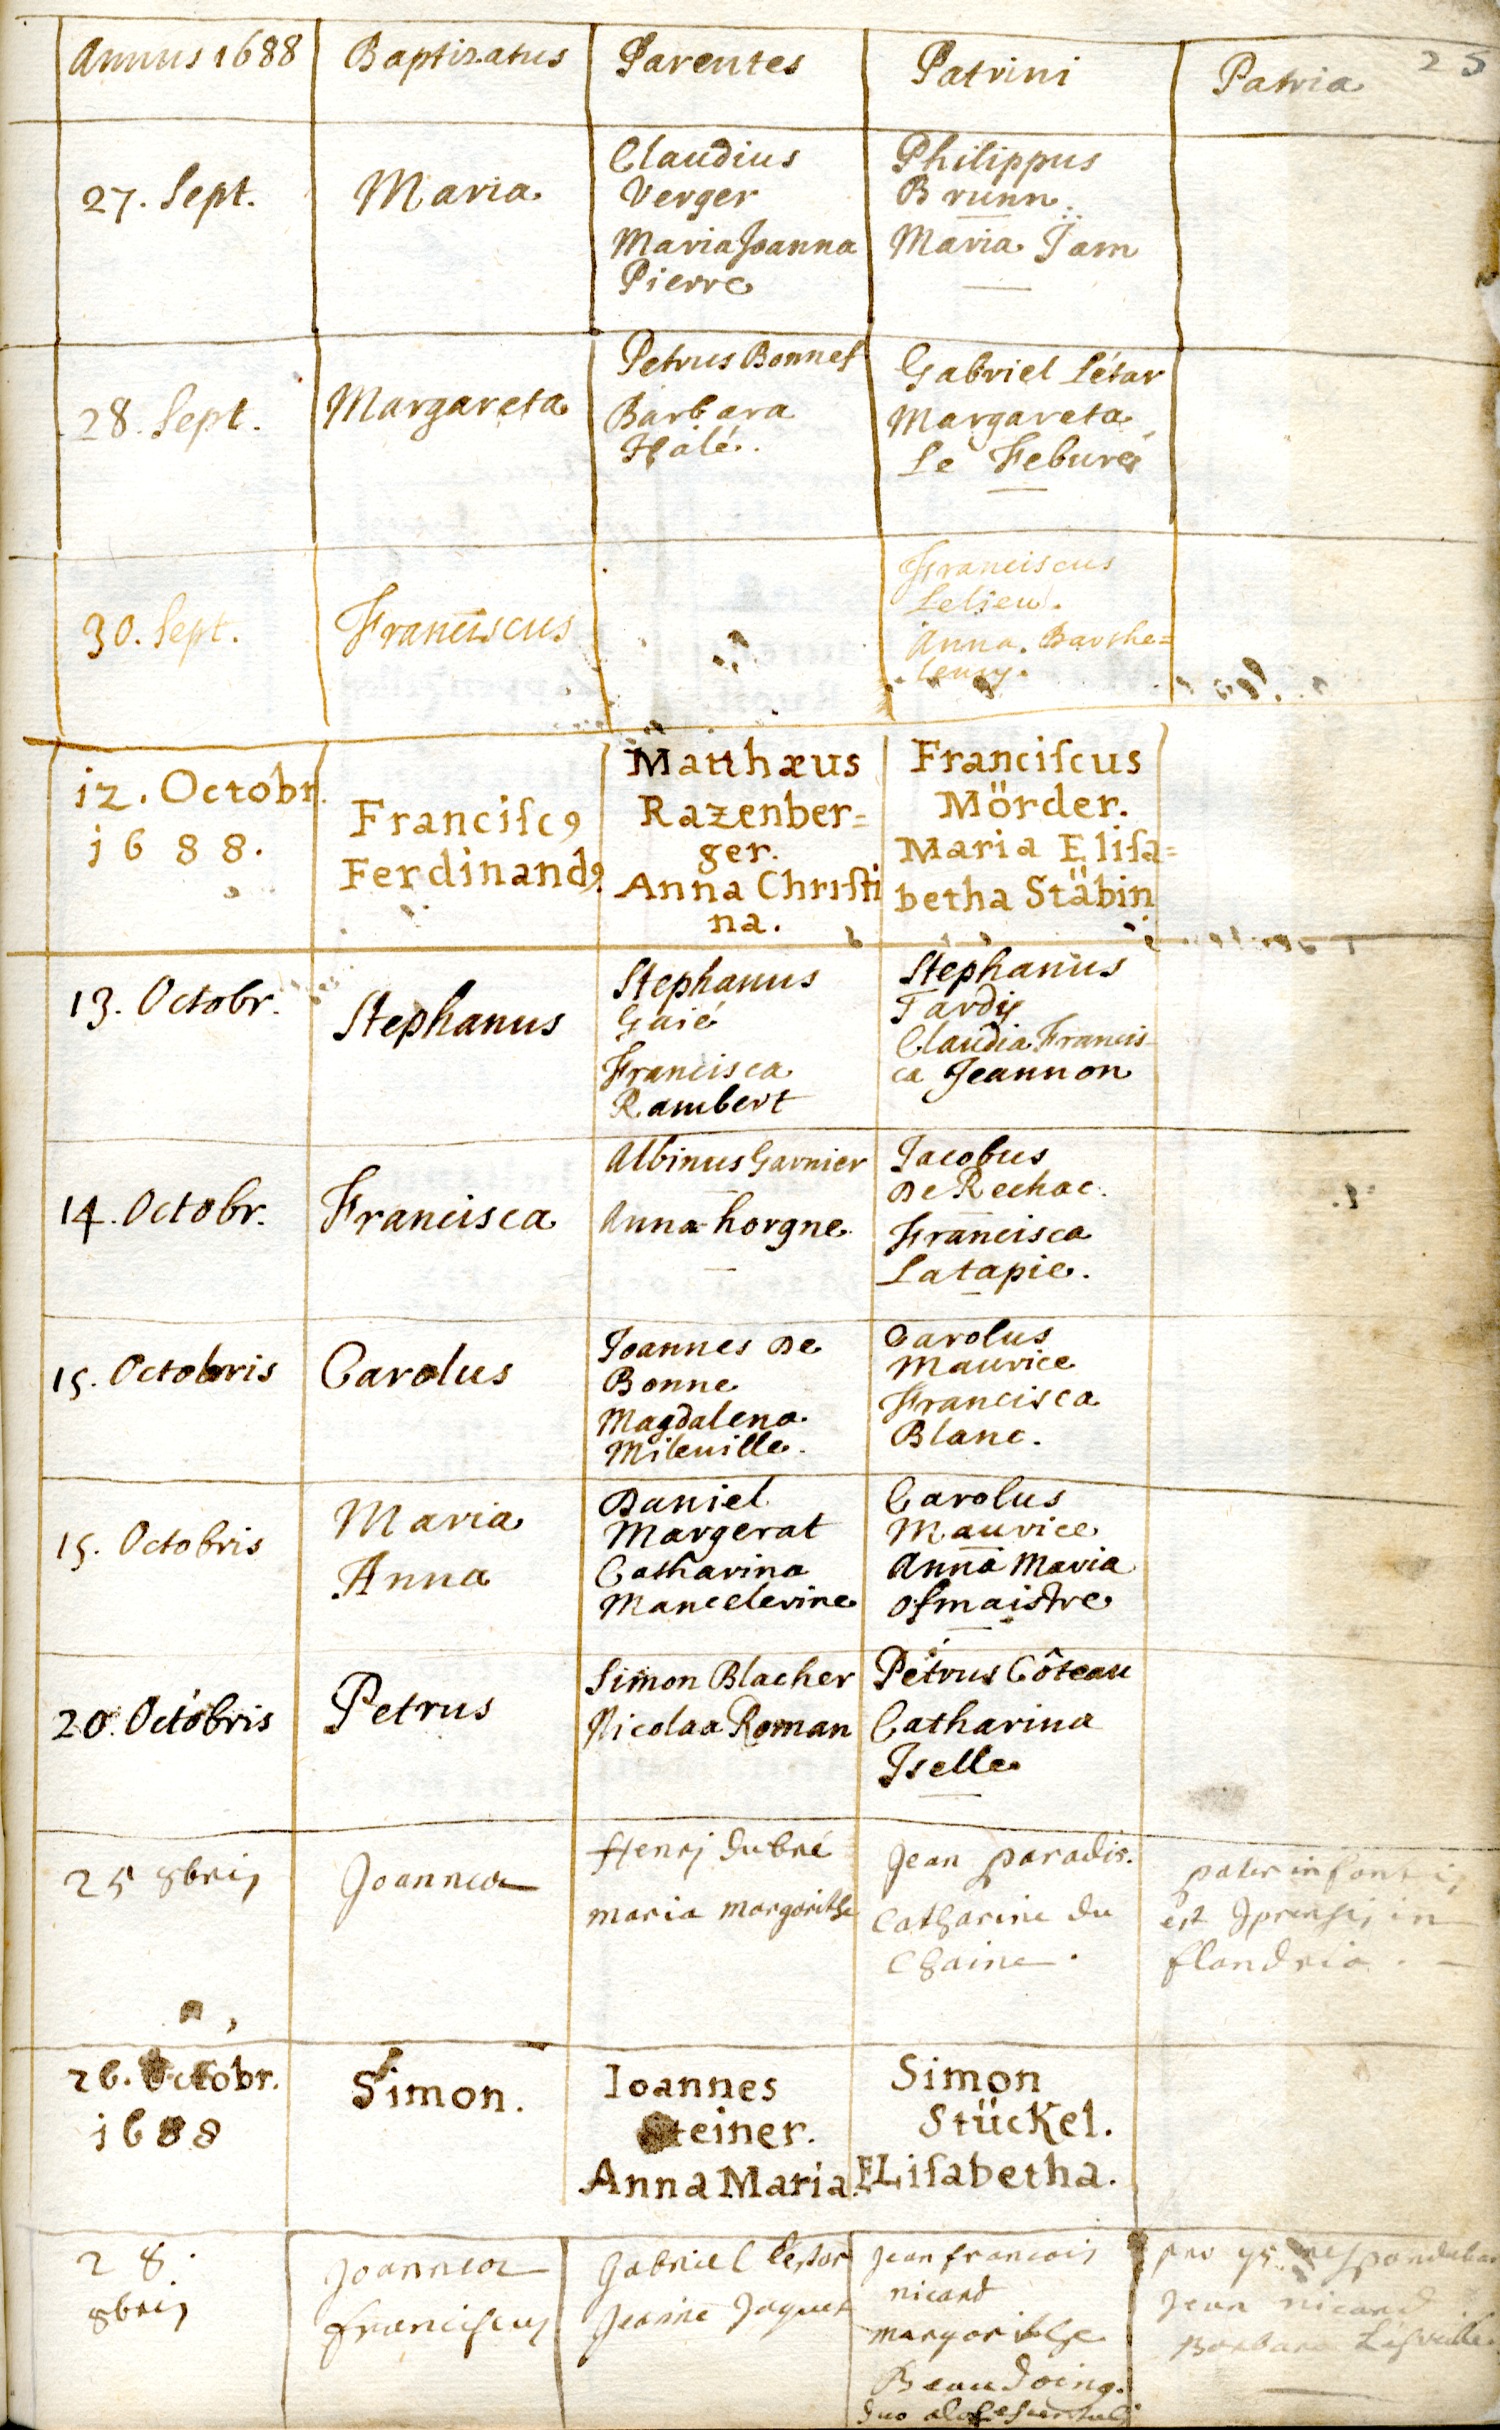 25
Annus 1688 Baptizatus Parentes Patrini Patria
27. Sept.
Maria
Claudius
Verger
Maria Joanna
Pierre
Philippus
Brunn.
Maria Jam
28. Sept.
Margareta
Petrus Bonnef
Barbara
Halé.
Gabriel Létar
Margareta
Le Feburé
30. Sept.
Franciscus
Franciscus
Lelieu.
Anna. Barthe=
lemy.
12. Octobr.
1688.
Franciſcꝰ
Ferdinandꝰ
Matthæus
Razenber=
ger.
Anna Chriſti
na.
Franciſcus
Mörder.
Maria Eliſa=
betha Stäbin
13. Octobr.
Stephanus
Stephanus
Gaié
Francisca
Rambert
Stephanus
Tardiſ
Claudia Francis-
ca Jeannon
14. Octobr.
Francisca
Albinus Garnier
Anna horgne
Jacobus
De Rechac.
Francisca
Latapie.
15. Octobris
Carolus
Joannes De
Bonne
Magdalena
Mileuille.
Carolus
Maurice
Francisca
Blanc.
15. Octobris
Maria
Anna
Daniel
Margerat
Catharina
Mancelerine
Carolus
Maurice
Anna Maria
Ofmaistre
20. Octobris
Petrus
Simon Blacher
Nicolaa Roman
Petrus Côteau
Catharina
Iselle
25 8bris
Joannes
Henrj dubré
maria margarithe
Jean paradis.
Catharine du
Chaine.
pater infantis
est Iprensis in
flandria.
26. Octobr.
1688
Simon.
Ioannes
Steiner.
Anna Maria.
Simon
Stückel.
ELiſabetha.
28.
8bris
Joannes
franciscus
Gabriel letar
Jeanne Jaquet
Jean francois
nicard
margarithe
Beaudoing.
duo adolescentuli
pro ys respondebant
Jean nicard
Barbara